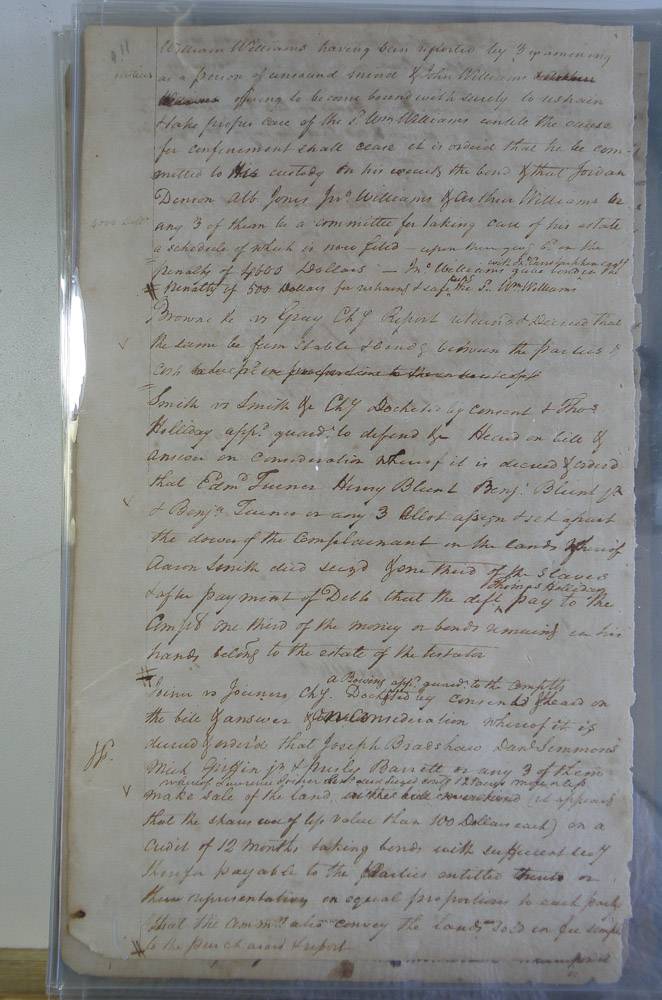 William Williams having been reported by 3 examining
as a person of unsound mind & John Williams
offering to become bound with surety to restrain
& take proper care of the sd. Wm Williams untill the cause
for confinement shall cease it is ordered that he be com-
mitted to his custody on his execut.g the bond & that Jordan
Denson Alb Jones Jno. Williams & Arthur Williams or
any 3 of them be a committee for taking care of his estate
4000 Doll
a schedule of which is now filed — upon their giv.g bd. in the
penalty of 4000 Dollars — Jno Williams gave bond in the
penalty of 500 Dollars for restrain.g & safe the sd. Wm Williams
Browne &c vs Gray Chy Report returned & Decreed that
the same be firm stable & bind.g between the parties &
costs
Smith vs Smith &c Chy Docketed by consent & Thos.
Holliday appd. guard.n to defend &c Heard on bill &
answer on consideration whereof it is decreed & ordered
that Edmd Turner Henry Blunt Benj. Blunt jr
& Benja. Turner or any 3 Allot assign & set apart
the dower of the Complainant in the lands whereof
Aaron Smith died seizd & one third of the Slaves
Thomas Holliday
& after payment of Debts that the deft pay to the
Complt one third of the money or bonds remaining in his
hands belong.g to the estate of the testator
appd. guard.n to the Complts
Joiner vs Joiners Chy. Docketed by consent & heard on
the bill & answer & on Consideration whereof it is
decreed & order'd that Joseph Bradshaw Danl Simmons
Mick Griffin jr & Barrett or any 3 of them
make sale of the land (it appears
that the shares are of less value than 100 Dollars each) on a
credit of 12 months taking bonds with sufficient secy
therefor payable to the parties entitled thereto or
their representatives in equal proportions to each party
& that the Comrs also convey the lands sold in fee simple
to the purchaser & report